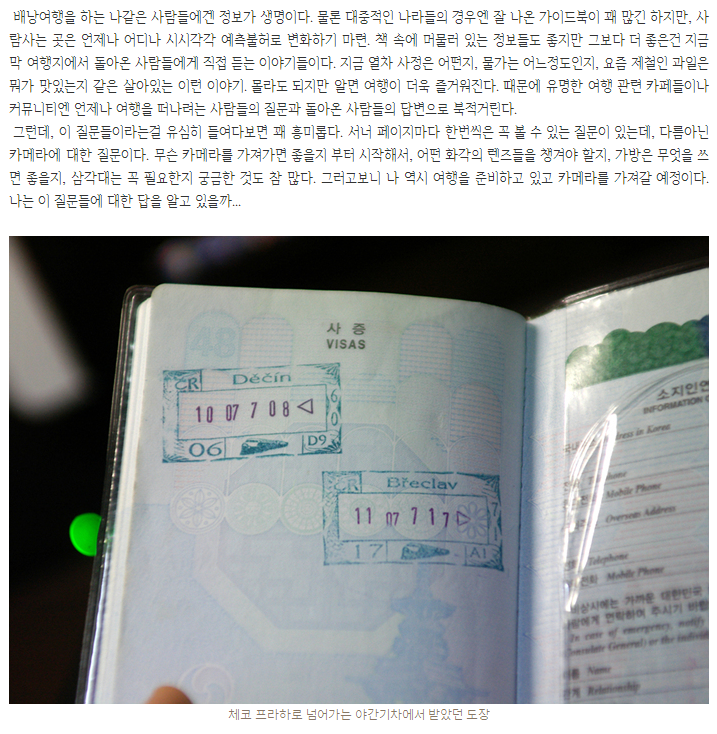 배낭여행을 하는 나같은 사람들에겐 정보가 생명이다. 물론 대중적인 나라들의 경우엔 잘 나온 가이드북이 꽤 많긴 하지만, 사
람사는 곳은 언제나 어디나 시시각각 예측불허로 변화하기 마련. 책 속에 머물러 있는 정보들도 좋지만 그보다 더 좋은건 지금
막 여행지에서 돌아온 사람들에게 직접 듣는 이야기들이다. 지금 열차 사정은 어떤지, 물가는 어느정도인지, 요즘 제철인 과일은
뭐가 맛있는지 같은 살아있는 이런 이야기. 몰라도 되지만 알면 여행이 더욱 즐거워진다. 때문에 유명한 여행 관련 카페들이나
커뮤니티엔 언제나 여행을 떠나려는 사람들의 질문과 돌아온 사람들의 답변으로 북적거린다.
그런데, 이 질문들이라는걸 유심히 들여다보면 꽤 흥미롭다. 서너 페이지마다 한번씩은 꼭 볼 수 있는 질문이 있는데, 다름아닌
카메라에 대한 질문이다. 무슨 카메라를 가져가면 좋을지 부터 시작해서, 어떤 화각의 렌즈들을 챙겨야 할지, 가방은 무엇을 쓰
면 좋을지, 삼각대는 꼭 필요한지 궁금한 것도 참 많다. 그러고보니 나 역시 여행을 준비하고 있고 카메라를 가져갈 예정이다.
나는 이 질문들에 대한 답을 알고 있을까...
48
사 증
VISAS
ČR Děčín
10 07 7 08
60
06 D9
ČR Břeclav
11 07 7 17
71
17 A1
소지인연
INFORMATION O
ddress in Korea
Mobile Phone
Overseas Address
Telephone
Mobile Phone
비상시에는 가까운 대한민국
람에게 연락하여 주시기 바랍
In case of emergency, notify
Consulate General) or the individ
Name
Relationship
체코 프라하로 넘어가는 야간기차에서 받았던 도장